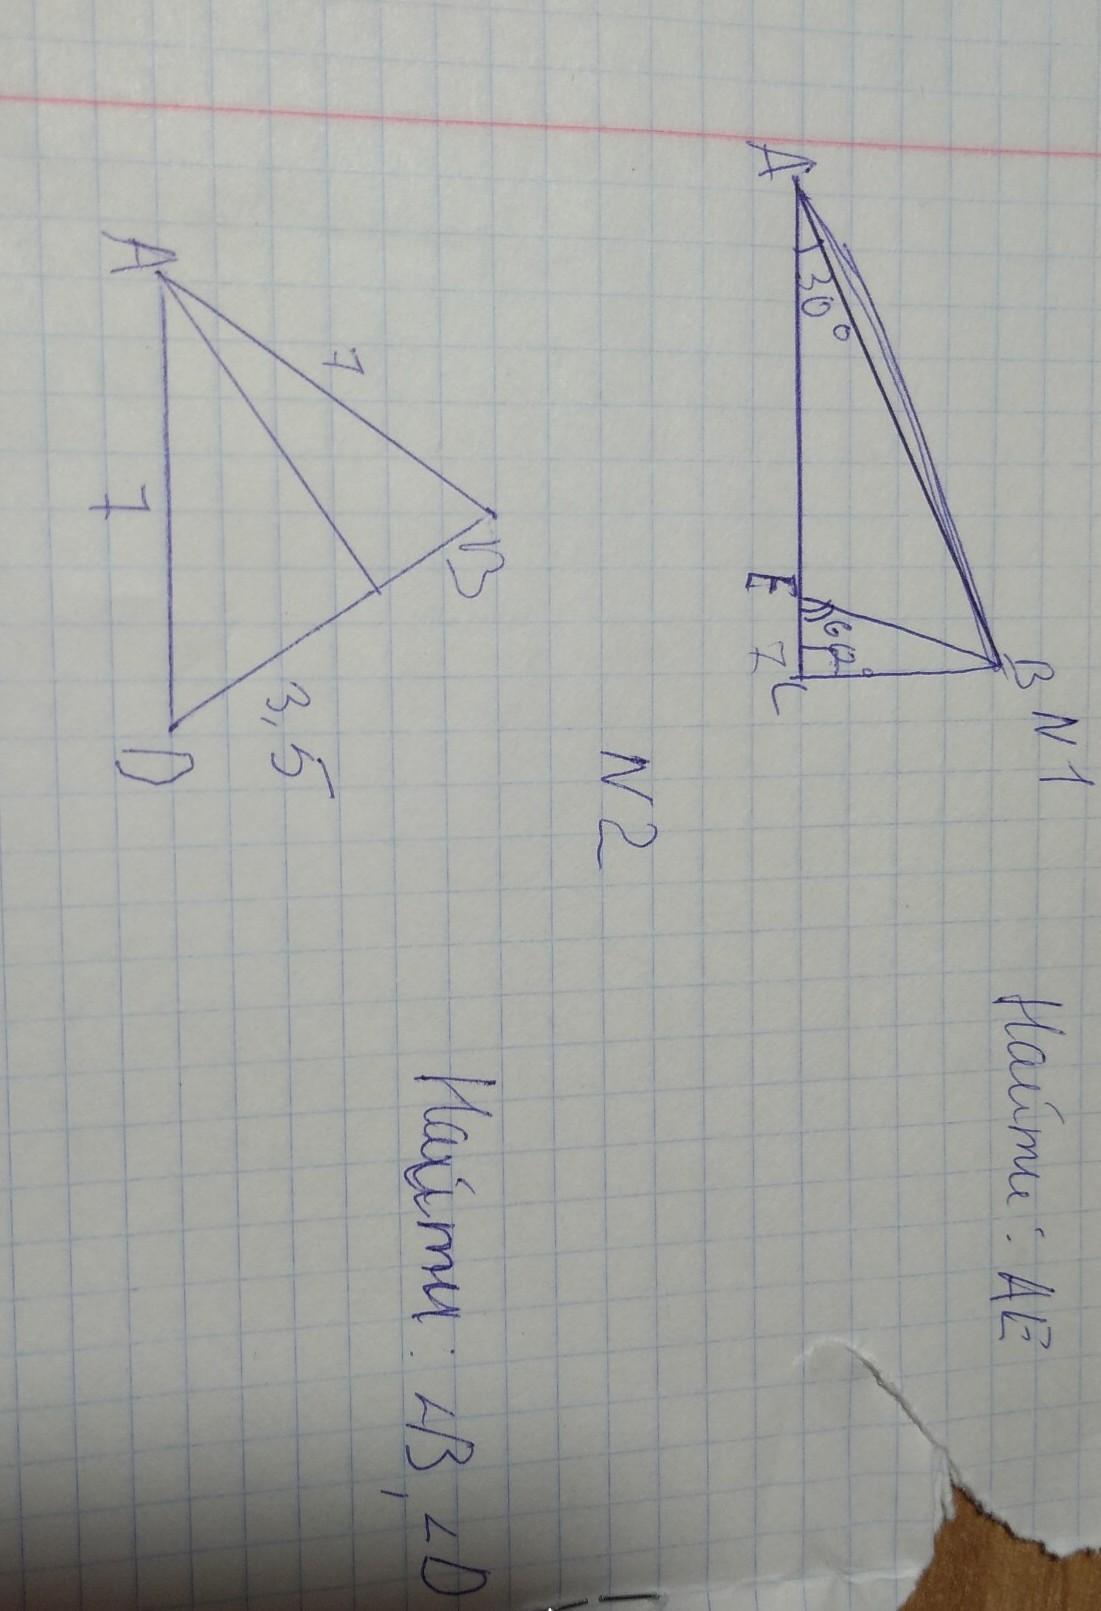 N1
B
A
30°
E
60°
7
C
Найти: AE
N2
B
7
A
3,5
7
D
Найти: ∠B, ∠D